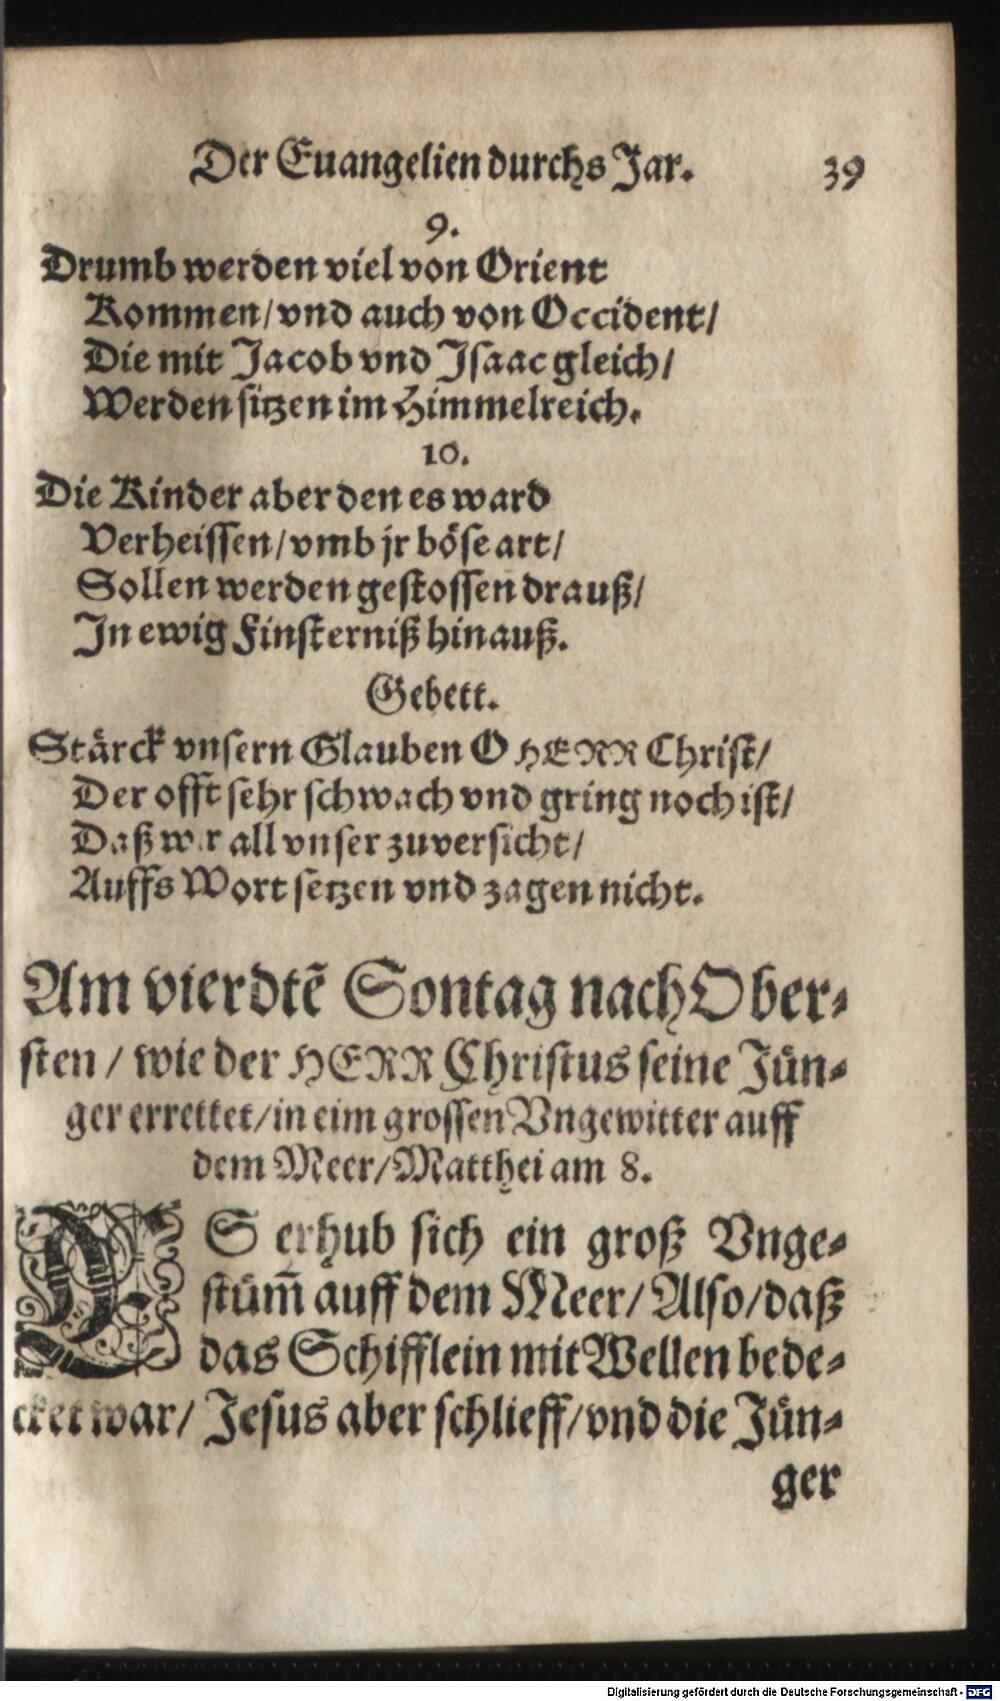 Der Euangelien durchs Jar. 39
9.
Drumb werden viel von Orient
Kommen/ vnd auch von Occident/
Die mit Jacob vnd Jsaac gleich/
Werden sitzen im Himmelreich.
10.
Die Kinder aber den es ward
Verheissen/ vmb jr böse art/
Sollen werden gestossen drauß/
Jn ewig Finsterniß hinauß.
Gebett.
Stärck vnsern Glauben O HERR Christ/
Der offt sehr schwach vnd gring noch ist/
Daß wir all vnser zuversicht/
Auffs Wort setzen vnd zagen nicht.
Am vierdtē Sontag nach Ober-
sten/ wie der HERR Christus seine Jün-
ger errettet/ in eim grossen Vngewitter auff
dem Meer/ Matthei am 8.
ES erhub sich ein groß Vnge-
stüm̄ auff dem Meer/ Also/ daß
das Schifflein mit Wellen bede-
cket war/ Jesus aber schlieff/ vnd die Jün-
ger
Digitalisierung gefördert durch die Deutsche Forschungsgemeinschaft - DFG